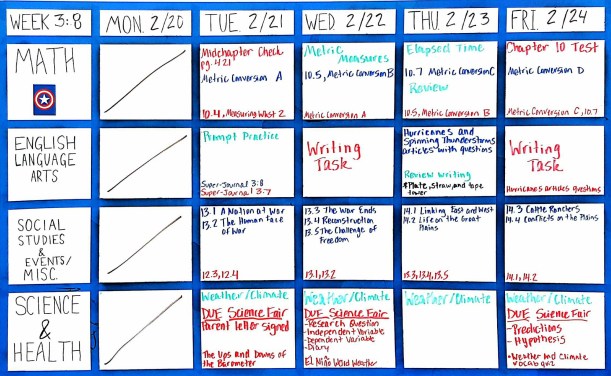 WEEK 3:8
MON. 2/20
TUE. 2/21
WED. 2/22
THU. 2/23
FRI. 2/24
MATH
Midchapter Check
pg. 421
Metric Conversion A
10.4, Measuring Wkst 2
Metric
Measures
10.5, Metric Conversion B
Metric Conversion A
Elapsed Time
10.7 Metric Conversion C
Review
10.5, Metric Conversion B
Chapter 10 Test
Metric Conversion D
Metric Conversion C, 10.7
ENGLISH
LANGUAGE
ARTS
Prompt Practice
Super-Journal 3:8
Super-Journal 3:7
Writing
Task
Hurricanes and
Spinning Thunderstorms
articles with questions
Review writing
Plate, straw, and tape
tower
Writing
Task
Hurricanes articles questions
SOCIAL
STUDIES
&
EVENTS/
MISC.
13.1 A Nation at War
13.2 The Human Face
of War
12.3, 12.4
13.3 The War Ends
13.4 Reconstruction
13.5 The Challenge of
Freedom
13.1, 13.2
14.1 Linking East and West
14.2 Life on the Great
Plains
13.3, 13.4, 13.5
14.3 Cattle Ranchers
14.4 Conflicts on the Plains
14.1, 14.2
SCIENCE
&
HEALTH
Weather/Climate
DUE Science Fair
Parent letter signed
The Ups and Downs of
the Barometer
Weather/Climate
DUE Science Fair
-Research Question
-Independent Variable
-Dependent Variable
-Diary
El Niño Weather
Weather/Climate
Weather/Climate
DUE Science Fair
-Predictions
-Hypothesis
•Weather and Climate
vocab quiz